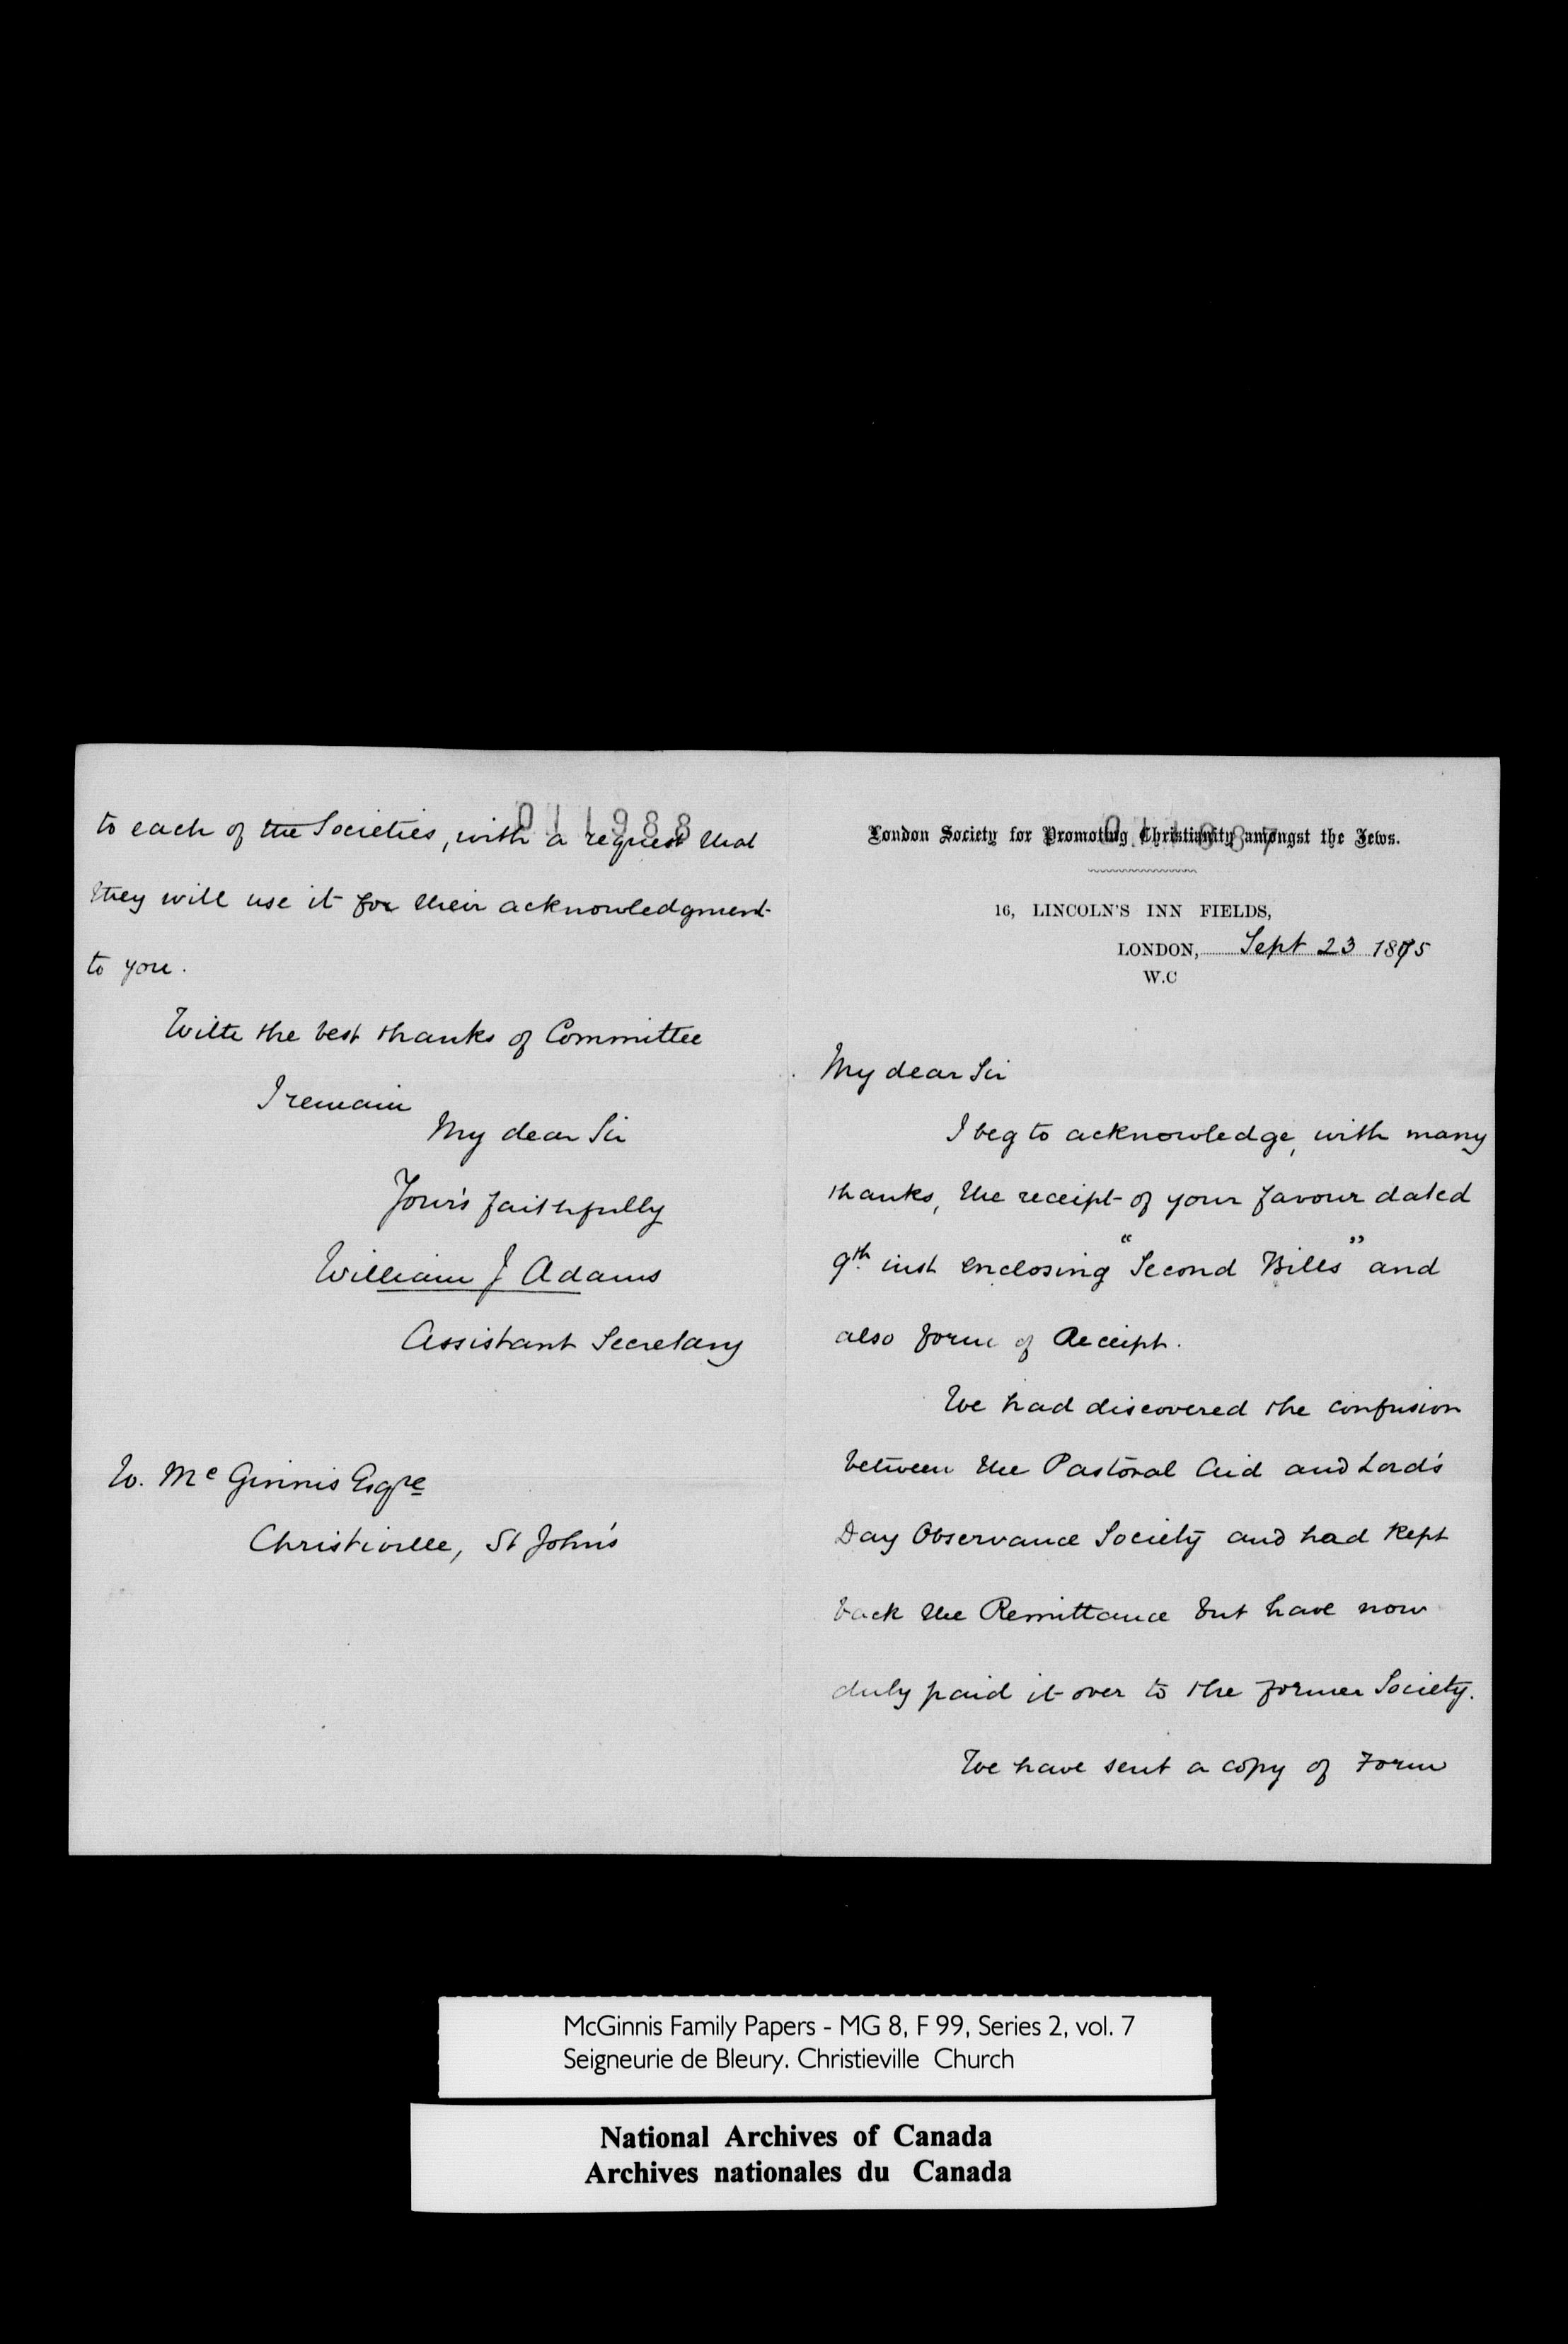 011987
London Society for Promoting Christianity amongst the Jews.
16, LINCOLN'S INN FIELDS,
LONDON, Sept 23 1875
W.C
My dear Sir
I beg to acknowledge, with many
thanks, the receipt of your favour dated
9th inst enclosing "Second Bills" and
also form of Receipt.
We had discovered the confusion
between the Pastoral Aid and Lord's
Day Observance Society and had kept
back the Remittance but have now
duly paid it over to the former Society.
We have sent a copy of Form
011988
to each of the Societies, with a request that
they will use it for their acknowledgment
to you.
With the best thanks of Committee
I remain
My dear Sir
Your's faithfully
William J Adams
Assistant Secretary
W. McGinnis Esqre
Christiville, St John's
McGinnis Family Papers - MG 8, F 99, Series 2, vol. 7
Seigneurie de Bleury. Christieville Church
National Archives of Canada
Archives nationales du Canada